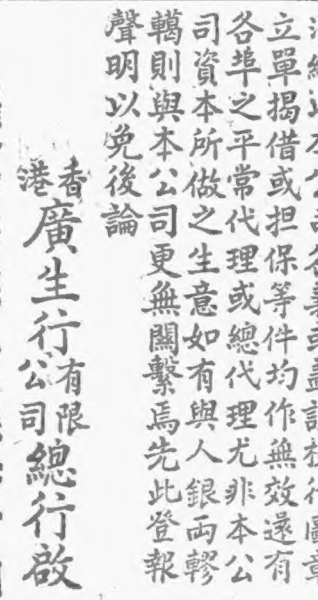 立單揭借或担保等件均作無效還有
各埠之平常代理或總代理尤非本公
司資本所做之生意如有與人銀両轇
轕則與本公司更無關繫焉先此登報
聲明以免後論
香港廣生行有限公司總行啟